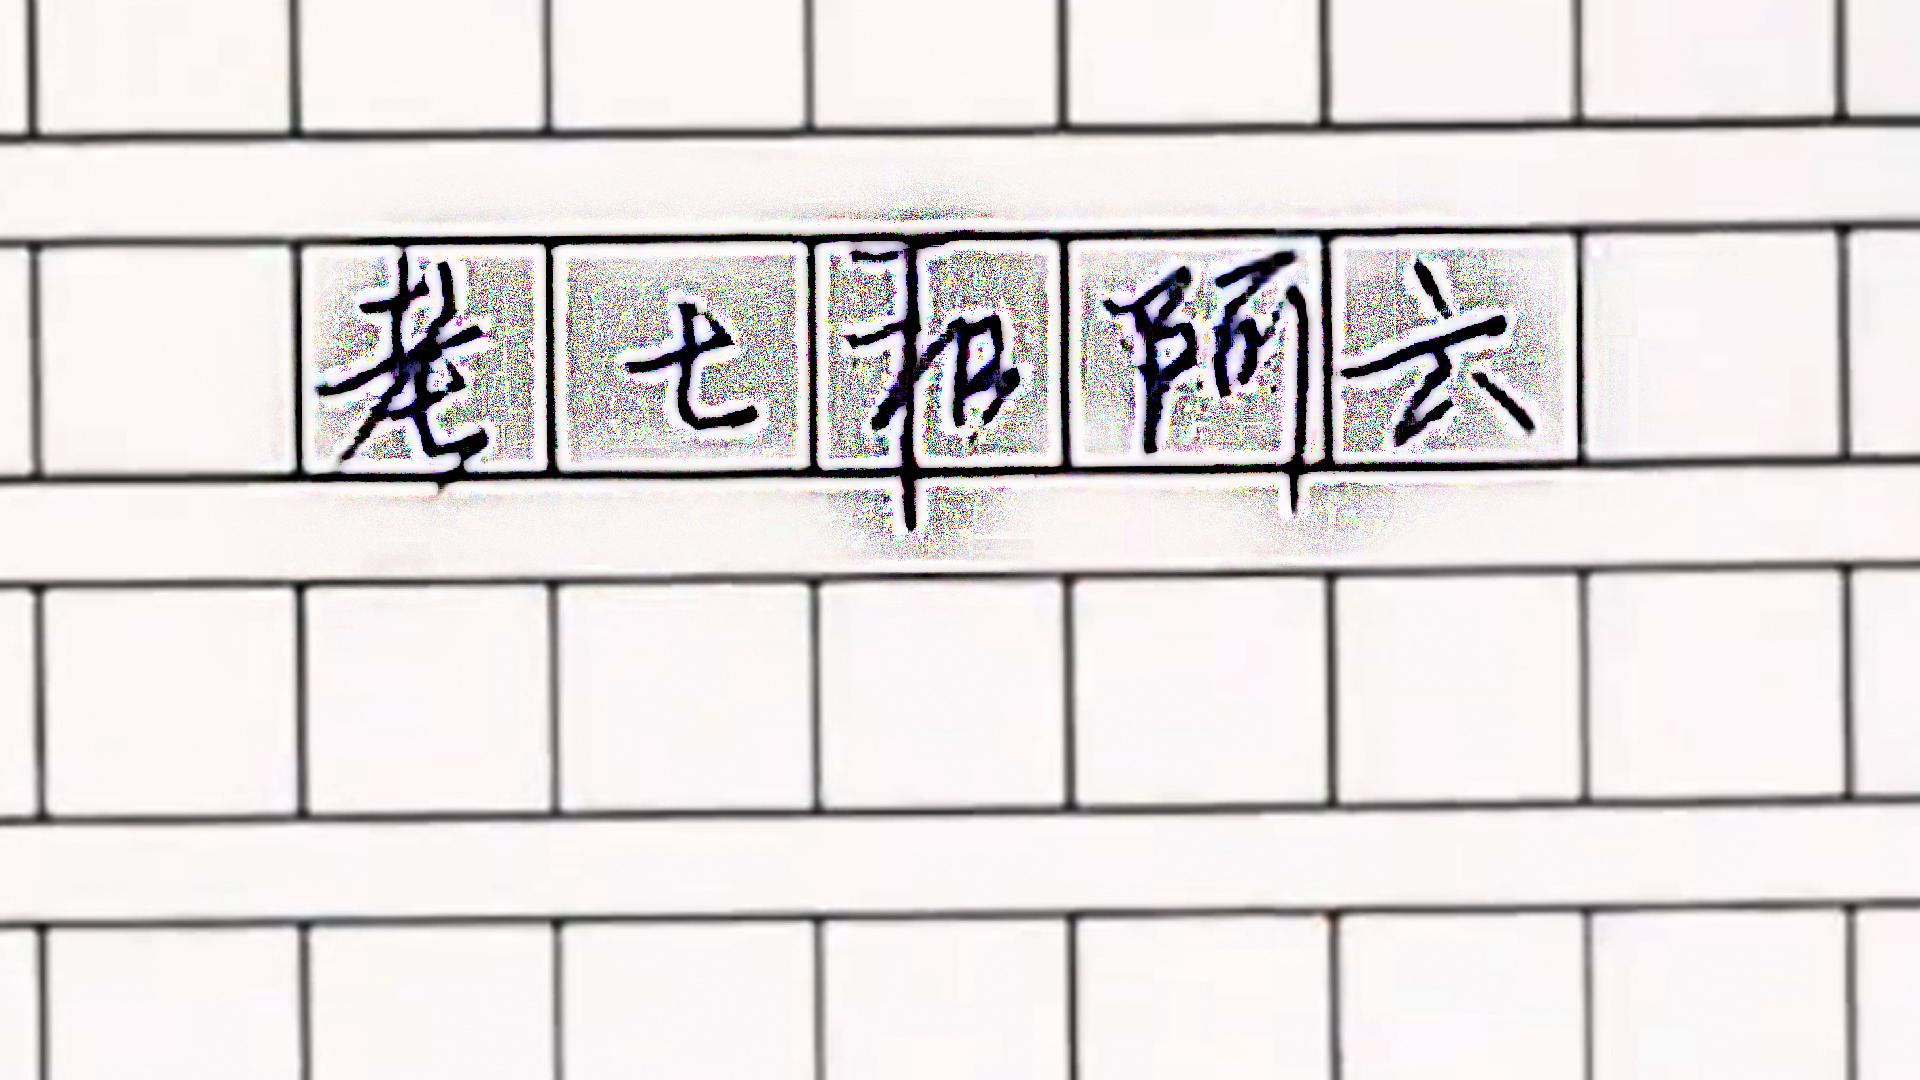 老七和阿六